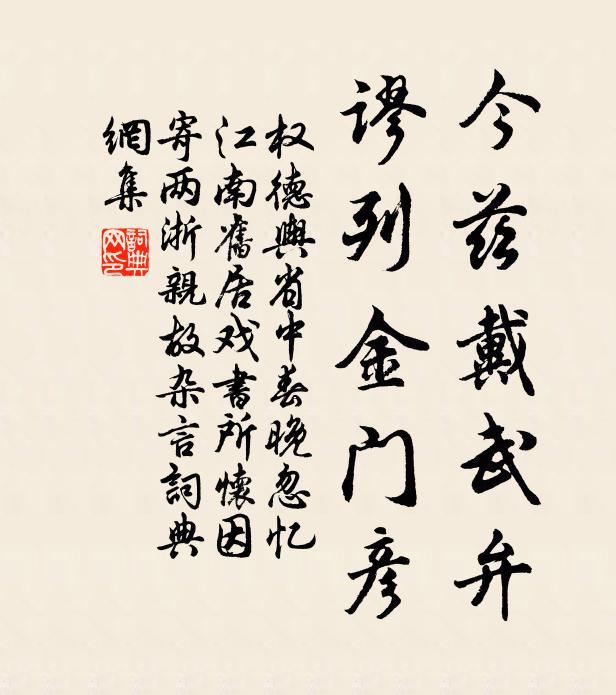 今兹戴武弁
谬列金门彦
权德舆省中春晚忽忆
江南旧居戏书所怀因
寄两浙親故杂言詞典
網集
詞典
网印